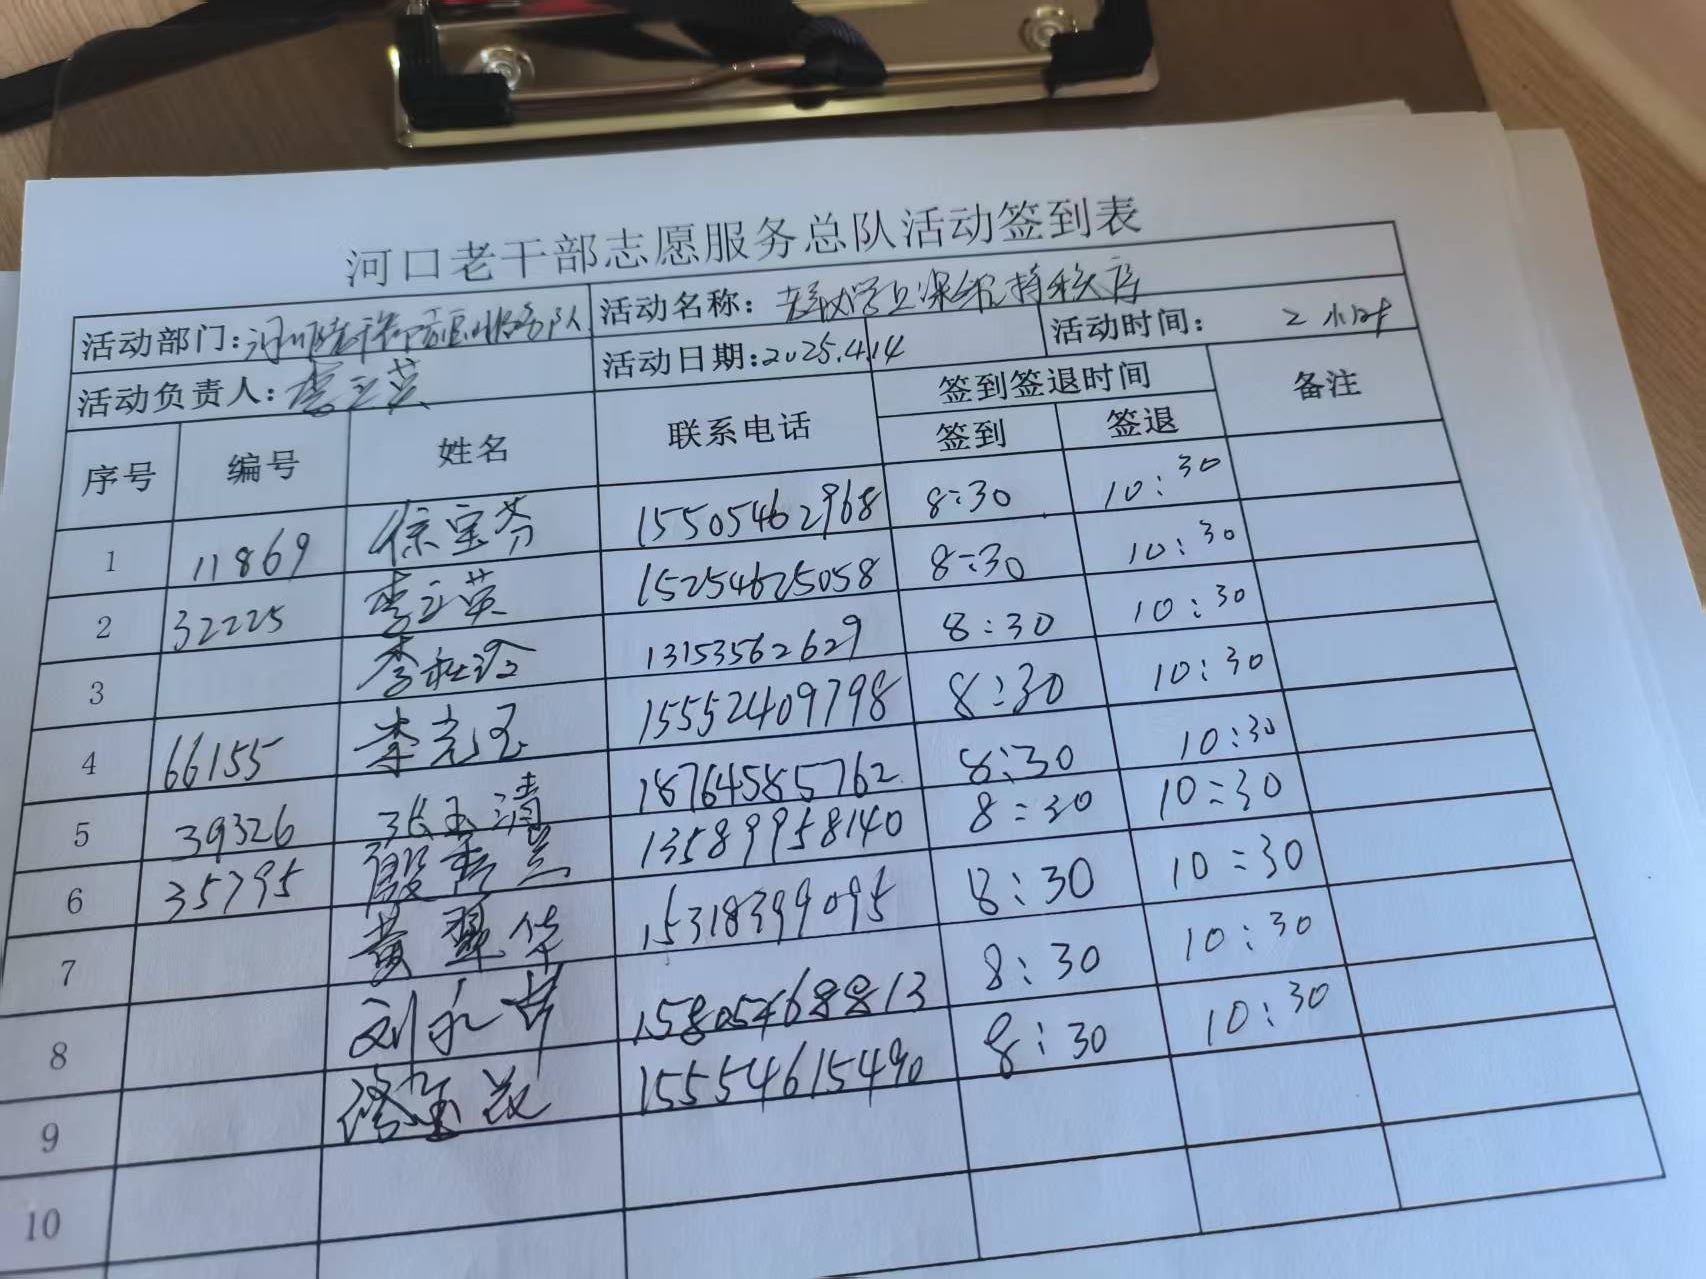 河口老干部志愿服务总队活动签到表
活动部门: 志愿服务队 活动名称:
活动负责人: 李立英 活动日期: 2025.4.14 活动时间: 2小时
序号 编号 姓名 联系电话 签到签退时间 备注
签到 签退
1 11869 徐宝芬 15505462968 8:30 10:30
2 32225 李立英 15254625058 8:30 10:30
3 李 13153562629 8:30 10:30
4 66155 李克玉 15552409798 8:30 10:30
5 39326 张玉清 18764585762 8:30 10:30
6 35795 殷秀兰 13589958140 8:30 10:30
7 黄翠华 15318399095 8:30 10:30
8 刘永 15805468813 8:30 10:30
9 15554615490 8:30 10:30
10